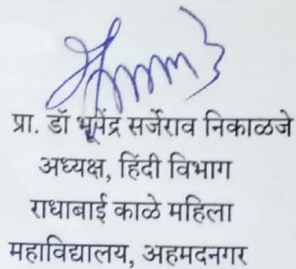 प्रा. डॉ भूपेंद्र सर्जेराव निकाळजे
अध्यक्ष, हिंदी विभाग
राधाबाई काळे महिला
महाविद्यालय, अहमदनगर